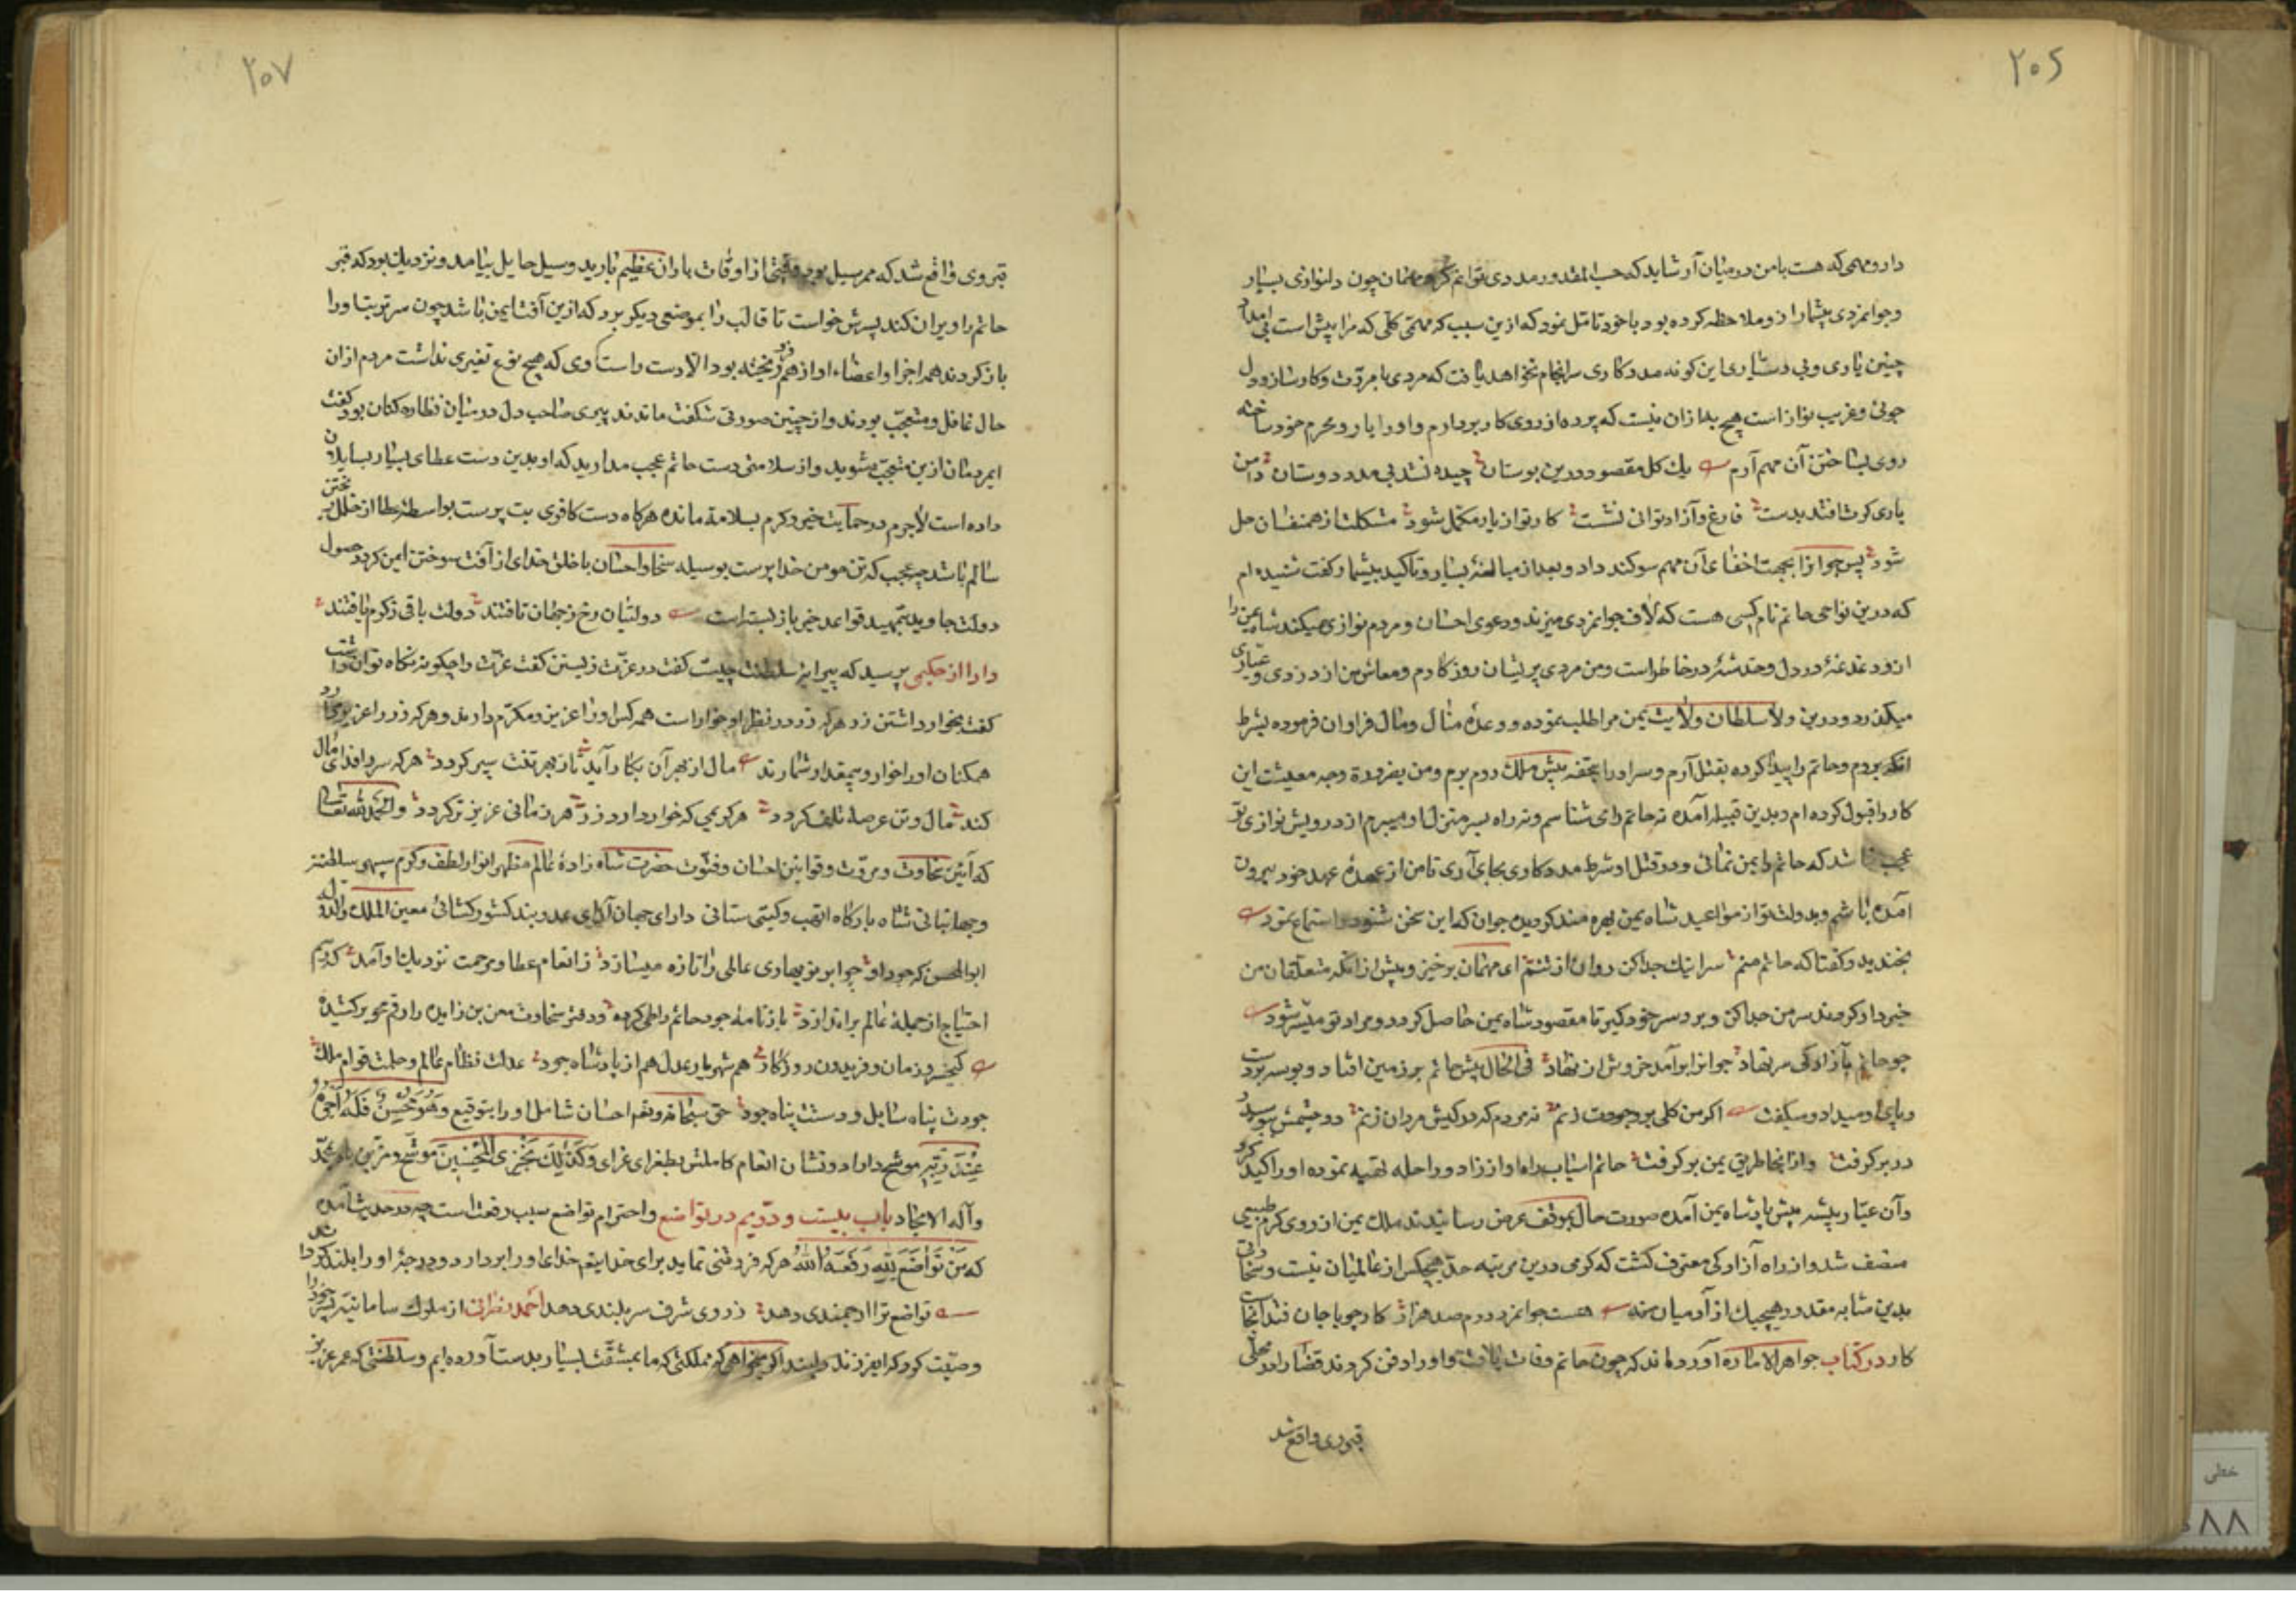 ۲۰۶
دارو مهمی که هست با من در میان آر شاید که حسب المقدور مددی توانم کرد مهمان چون دلنوازی بسیار
وجوانمردی بیشمار ازو ملاحظه کرده بود با خود تامل نمود که ازین سبب که مهمی کلی که مرا پیش است بی امداد
چنین یاری وبی دستیاری این کونه مددکاری سرانجام نخواهد یافت که مردی با مروت وکارساز ودل
جوئی وغریب نواز است هیچ به ازان نیست که پرده از روی کار بردارم واورا یار ومحرم خود ساخته
روی بساختن آن مهم آرم یک کل مقصود درین بوستان چیده نشد بی مدد دوستان دامن
یاری کرت افتد بدست فارغ وآزاد توانی نشست کار تو از یار مکمل شود مشکلت از همنفسان حل
شود پس جوانرا بجهت اخفای آن مهم سوکند داد وبعد از مبالغه بسیار وتاکید بیشمار کفت شنیده ام
که درین نواحی حاتم نام کسی هست که لاف جوانمردی میزند ودعوی احسان ومردم نوازی میکند شاه یمن را
ازو دغدغهٔ در دل وخدشهٔ در خاطر است ومن مردی پریشان روزکارم ومعاش من از دزدی وعیاری
میکذرد ودرین ولا سلطان ولایت یمن مرا طلب نموده ووعدهٔ منال ومال فراوان فرموده بشرط
انکه بروم وحاتم را پیدا کرده بقتل آرم وسر اورا بتحفه پیش ملک روم برم ومن بضرورة وجه معیشت این
کار را قبول کرده ام وبدین قبیله آمده نه حاتم رای شناسم ونه راه بسر منزل او میبرم از درویش نوازی تو
عجب نباشد که حاتم را بمن نمائی ودر قتل او شرط مددکاری بجای آری تا من از عهدهٔ عهد خود بیرون
آمده باشم وبدولت تو از مواعید شاه یمن بهره مند کردیده جوان که این سخن شنود واستماع نمود
بخندید وکفتا که حاتم منم سر اینک جدا کن روان از تنم ای مهمان برخیز وپیش ازانکه متعلقان من
خبردار کردند سر من جدا کن وبر سر خود کیر تا مقصود شاه یمن حاصل کردد ومراد تو میسر شود
چو حاتم بآزادکی سر نهاد جوانرا برآمد خروش از نهاد فی الحال پیش حاتم بر زمین افتاد وبوسه بردست
وپای او میداد ومیکفت اکر من کلی بر وجودت زنم نه مردم که در کیش مردان زنم دو چشمش ببوسید
در بر کرفت وازانجا طریق یمن بر کرفت حاتم اسباب راه او از زاد وراحله تهیه نموده اورا کسیل کرد
وآن عیار پیشه پیش پادشاه یمن آمده صورت حال بموقف عرض رسانید ملک یمن از روی کرم طبیعی
منصف شد واز راه آزادکی معترف کشت که کرمی درین مرتبه حد هیچکس از عالمیان نیست وسخاوتی
بدین مثابه مقدور هیچیک از آدمیان نه هست جوانمرد درم صد هزار کار چو با جان فتد آنجاست
کار در کتاب جواهر الاماره آورده اند که چون حاتم وفات یافت واورا دفن کردند قضا را در محلی
قبر وی واقع شد
۲۰۷
قبر وی واقع شد که ممر سیل بود وقتی از اوقات باران عظیم بارید وسیل حایل بیامد ونزدیک بود که قبر
حاتم را ویران کند پسرش خواست تا قالب را بموضعی دیکر برد که ازین آفت ایمن باشد چون سر تربت اورا
باز کردند همه اجزا واعضاء او از هم فرو ریخته بود الا دست راست وی که هیچ نوع تغیری نداشت مردم ازان
حال غافل ومتعجب بودند واز چنین صورتی شکفت ماندند پیری صاحب دل در میان نظاره کنان بود کفت
ای مردمان ازین متعجب مشوید واز سلامتی دست حاتم عجب مدارید که او بدین دست عطای بسیار بسایلان
داده است لاجرم در حمایت خیر وکرم بسلامت مانده هرکاه دست کافری بت پرست بواسطه عطا از خلل ریختن
سالم باشد چه عجب که تن مومن خدا پرست بوسیله سخا واحسان با خلق خدای از آفت سوختن ایمن کردد حصول
دولت جاوید بتمهید قواعد خیر باز بسته است دولتیان رخ ز جهان تافتند دولت باقی ز کرم یافتند
دارا از حکیمی پرسید که پیرایهٔ سلطنت چیست کفت در عزت زیستن کفت عزت را چکونه نکاه توان داشت
کفت بخوار داشتن زر هر که زر در نظر او خوار است همه کس اورا عزیز ومکرم دارند وهر که زر را عزیز دارد
همکنان اورا خوار وبیمقدار شمارند مال از بهر آن بکار آید تا ز بهر تنت سپر کردد هر که سر را فدای مال
کند مال وتن عرصهٔ تلف کردد هر کریمی که خوار دارد زر هر زمانی عزیز تر کردد والحمد لله تعالی
که آئین سخاوت ومروت وقوانین احسان وفتوت حضرت شاه زادهٔ عالم مظهر انوار لطف وکرم سپهر سلطنت
وجهانبانی شاه بارکاه ابهت وکیتی ستانی دارای جهان آرای عدو بند کشور کشائی معین الملک والدوله
ابو المحسن که جود او چو ابر نو بهاری عالمی را تازه میسازد ز انعام عطا ومرحمت نزدیک او آمد کریم
احتیاج از جملهٔ عالم براندازد بازنامهٔ جود حاتم را طی کرده ودفتر سخاوت معن بن زایده را رقم محو برکشیده
کیخسرو زمان وفریدون روزکار هم شهریار عدل هم از پادشاه جود عدلت نظام عالم وحلمت قوام ملک
جودت پناه سایل ودستت پناه جود حق سبحانه وتعالی احسان شامل اورا بتوقیع وَهُوَ مُحْسِنٌ فَلَهُ أَجْرُهُ
عِنْدَ رَبِّهِ موشح داراد ونشان انعام کاملش بطغرای غرای وَکَذٰلِکَ نَجْزِی الْمُحْسِنِینَ موشح ومزین باد بمحمد
وآله الامجاد باب بیست ودویم در تواضع واحترام تواضع سبب رفعت است چه در حدیث آمده
که مَنْ تَوَاضَعَ لِلّٰهِ رَفَعَهُ اللّٰهُ هر که فروتنی نماید برای خدایتعالی خدای اورا بردارد ودرجهٔ اورا بلند کرداند
تواضع ترا ارجمندی دهد ز روی شرف سربلندی دهد احمد از ملوک سامانیه پسر خود را
وصیت کرد که ای فرزند دلبند اکر میخواهی که مملکتی که ما بمشقت بسیار بدست آورده ایم وسلطنتی که عمر عزیز
خطی
۸۸